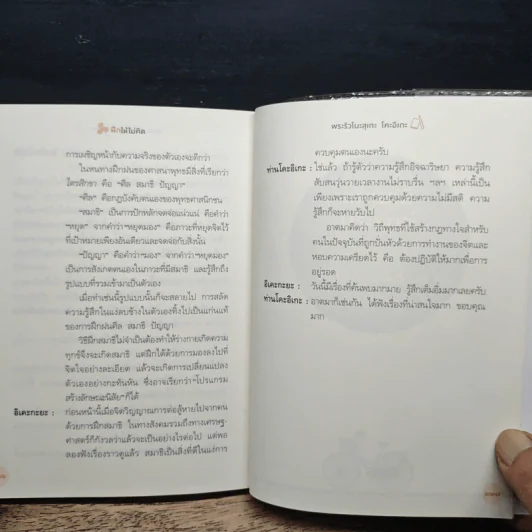 ฝึกให้ไม่คิด
การเผชิญหน้ากับความจริงของตัวเองจะดีกว่า
ในหนทางฝึกฝนของศาสนาพุทธมีสิ่งที่เรียกว่า
ไตรสิกขา คือ "ศีล สมาธิ ปัญญา"
"ศีล" คือกฎบังคับตนเองของพุทธศาสนิกชน
"สมาธิ" เป็นการปักหลักจดจ่อแน่วแน่ คือคำว่า
"หยุด" จากคำว่า "หยุดมอง" คือภาวะที่หยุดจิตไว้
ที่เป้าหมายเพียงอันเดียวและจดจ่อกับสิ่งนั้น
"ปัญญา" คือคำว่า "มอง" จากคำว่า "หยุดมอง"
เป็นการสังเกตตนเองในภาวะที่มีสมาธิ และรู้สึกถึง
รูปแบบที่รวมเข้ามาเป็นตัวเอง
เมื่อทำเช่นนี้รูปแบบนั้นก็จะสลายไป การสลัด
ความรู้สึกในแง่ลบข้างในตัวเองทิ้งไปเป็นแก่นแท้
ของการฝึกฝนศีล สมาธิ ปัญญา
วิธีฝึกสมาธิไม่จำเป็นต้องทำให้ร่างกายเกิดความ
ทุกข์จึงจะเกิดสมาธิ แต่ฝึกได้ด้วยการมองลงไปที่
จิตใจอย่างละเอียด แล้วจะเกิดการเปลี่ยนแปลง
ตัวเองอย่างกะทันหัน ซึ่งอาจเรียกว่า "โปรแกรม
สร้างลักษณะนิสัย" ก็ได้
อิเคะกะยะ : ก่อนหน้านี้เมื่อจิตวิญญาณการต่อสู้หายไปจากคน
ด้วยการฝึกสมาธิ ในทางสังคมรวมถึงทางเศรษฐ-
ศาสตร์ก็กังวลว่าแล้วจะเป็นอย่างไรต่อไป แต่พอ
ลองฟังเรื่องราวดูแล้ว สมาธิเป็นสิ่งที่ดีในแง่การ
พระริวโนะสุเกะ โคะอิเกะ
ควบคุมตนเองนะครับ
ท่านโคะอิเกะ : ใช่แล้ว ถ้ารู้ตัวว่าความรู้สึกอิจฉาริษยา ความรู้สึก
สับสนวุ่นวายเวลางานไม่ราบรื่น ฯลฯ เหล่านี้เป็น
เพียงเพราะเราถูกควบคุมด้วยความไม่มีสติ ความ
รู้สึกก็จะหายวับไป
อาตมาคิดว่า วิถีพุทธที่ใช้สร้างกฎทางใจสำหรับ
คนในปัจจุบันที่ถูกปั่นหัวด้วยการทำงานของจิตและ
หอบความเครียดไว้ คือ ต้องปฏิบัติให้มากเพื่อการ
อยู่รอด
อิเคะกะยะ : วันนี้มีเรื่องที่ค้นพบมากมาย รู้สึกเต็มอิ่มมากเลยครับ
ท่านโคะอิเกะ : อาตมาก็เช่นกัน ได้ฟังเรื่องที่น่าสนใจมาก ขอบคุณ
มาก